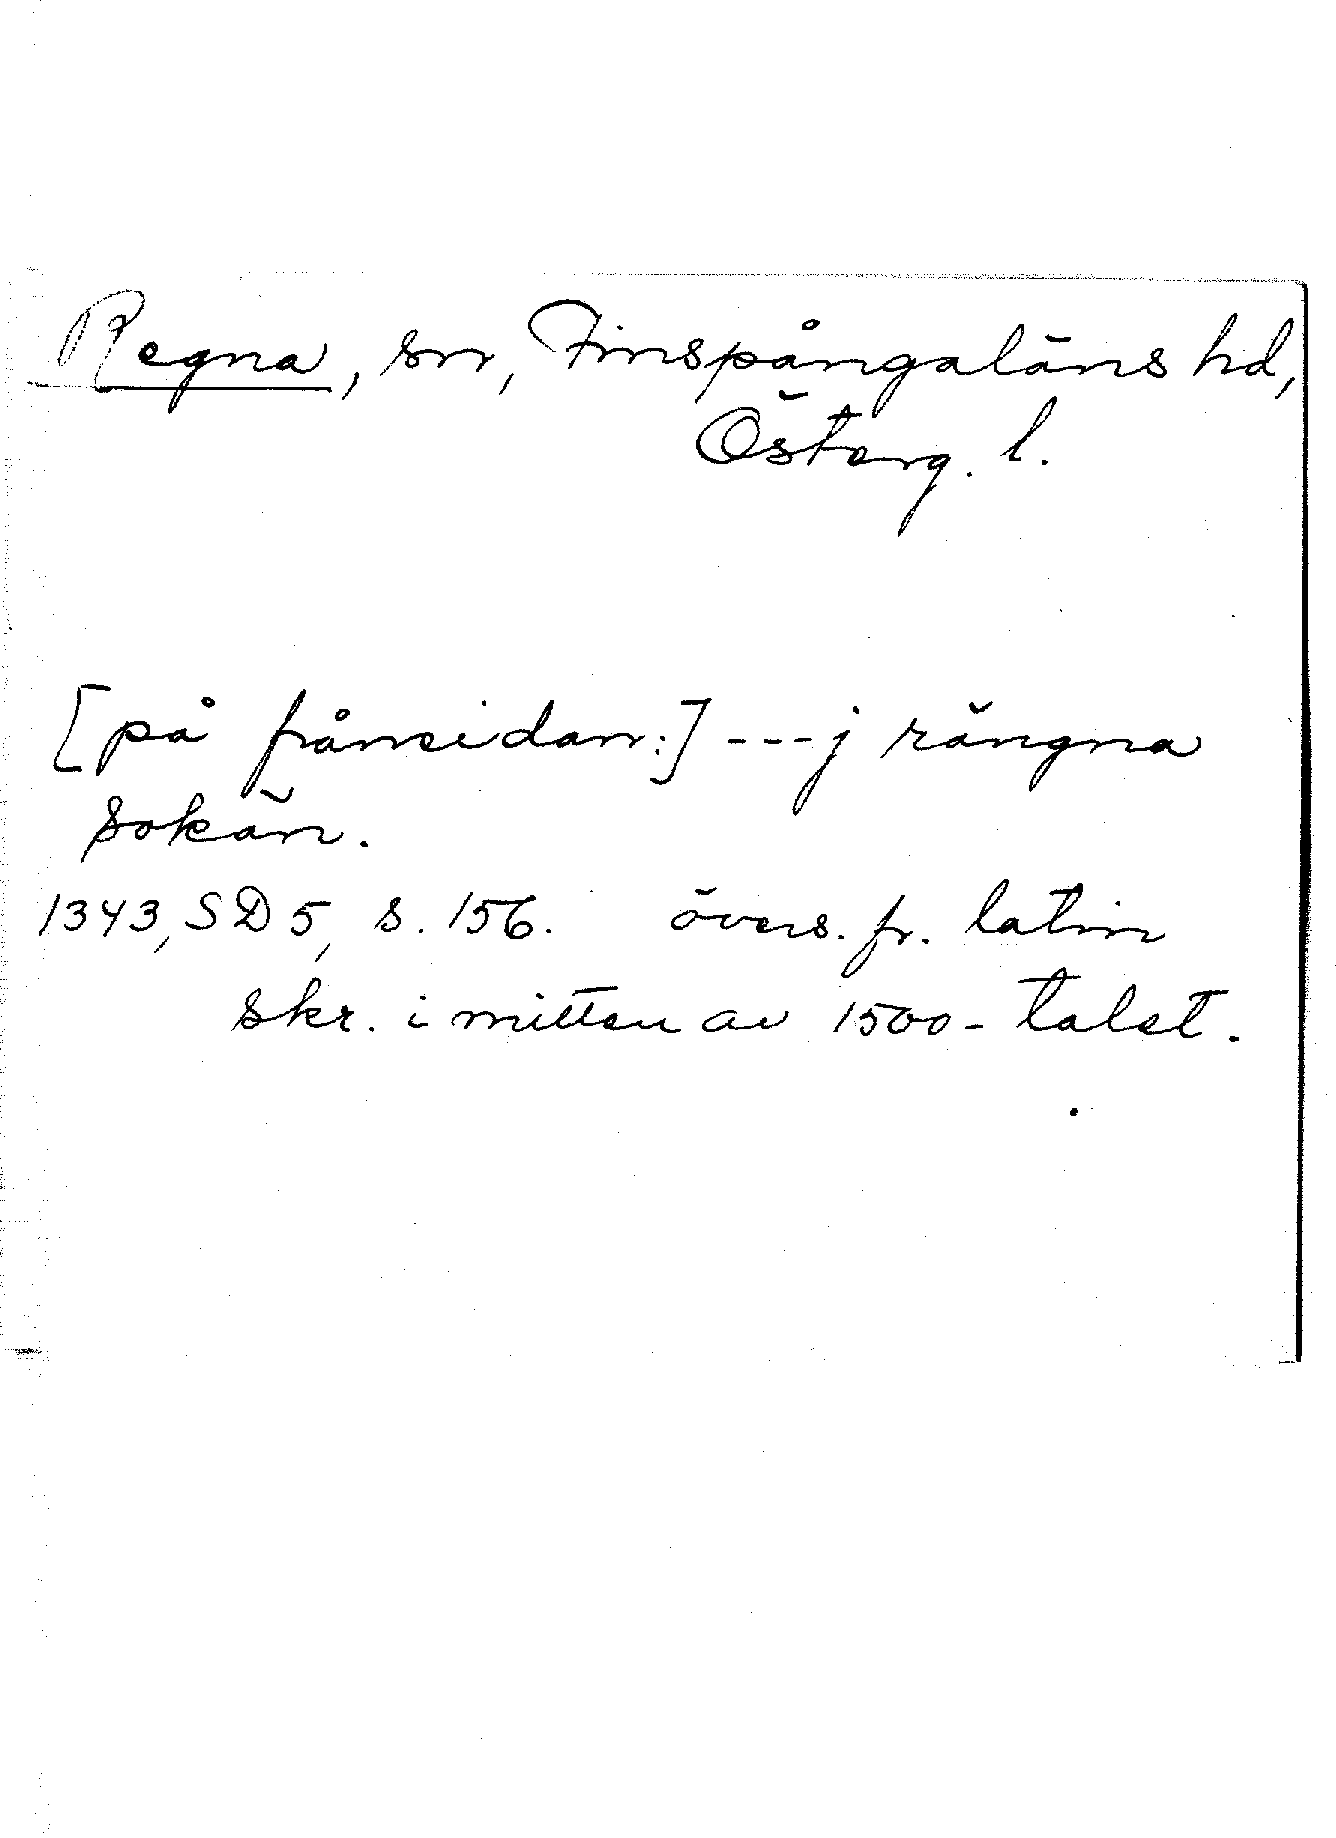 Regna, sn, Finspångaläns hd,
Österg. l.
[på frånsidan:] --- j rängna
sokän.
1343, SD 5, s. 156. övers. fr. latin
skr. i mitten av 1500-talet.